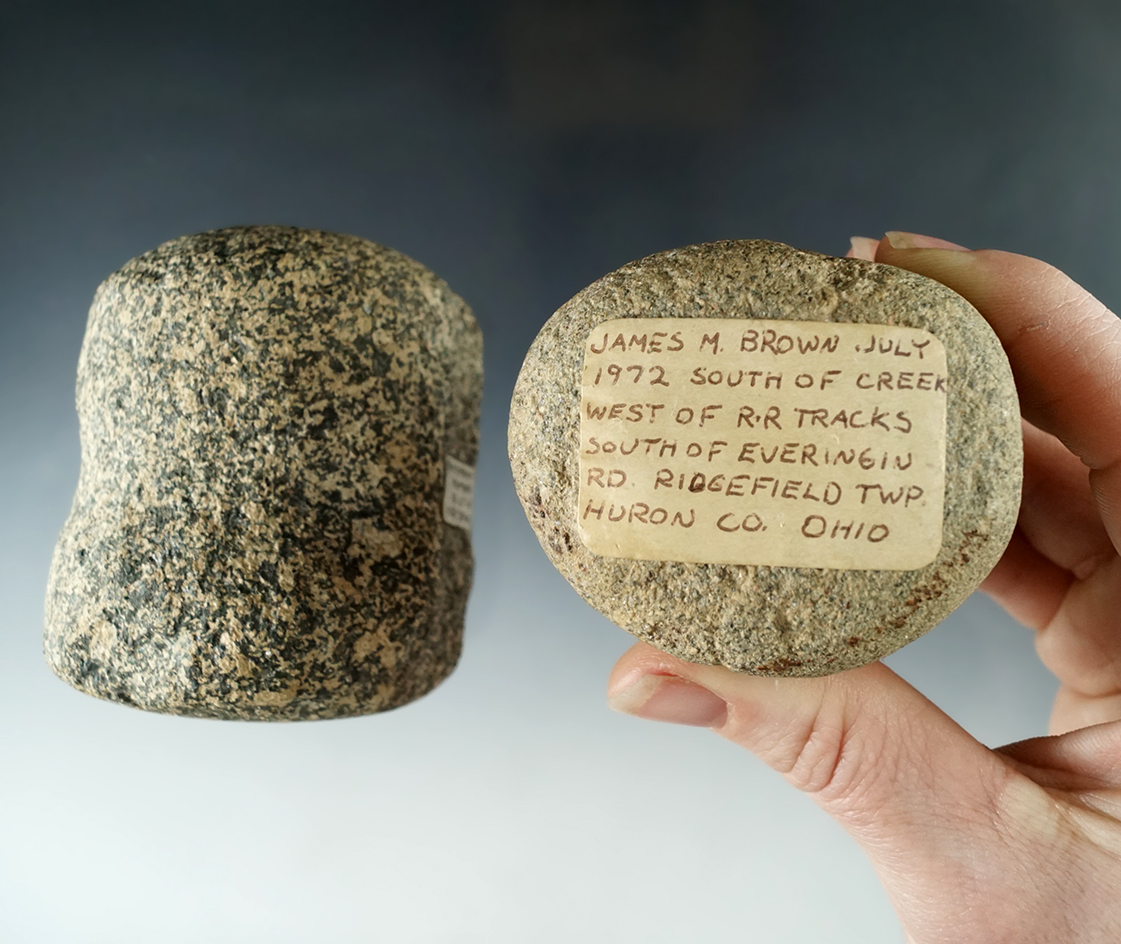 JAMES M. BROWN JULY
1972 SOUTH OF CREEK
WEST OF R.R TRACKS
SOUTH OF EVERINGIN
RD. RIDGEFIELD TWP.
HURON CO. OHIO